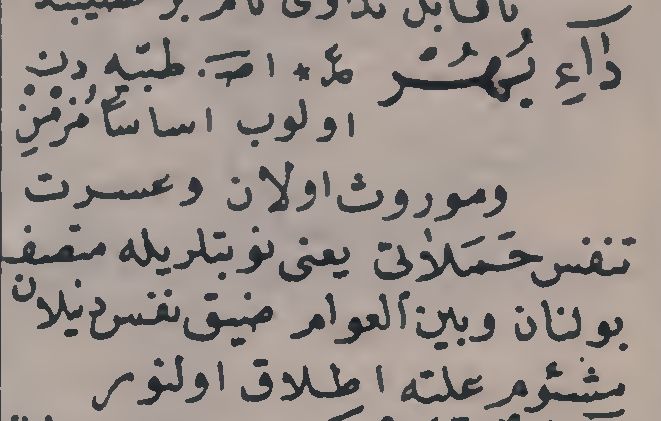 ناقابل تداوى
دَاۤءِ بُهُـْر طبيه دن
اولوب اساساً مُزمنِ
وموروث اولان وعسرت
تنفس حَمَلَاتى يعنى نوبتلريله متصف
بولنان وبين العوام ضيق نفس دنيلان
مشئوم علته اطلاق اولنور